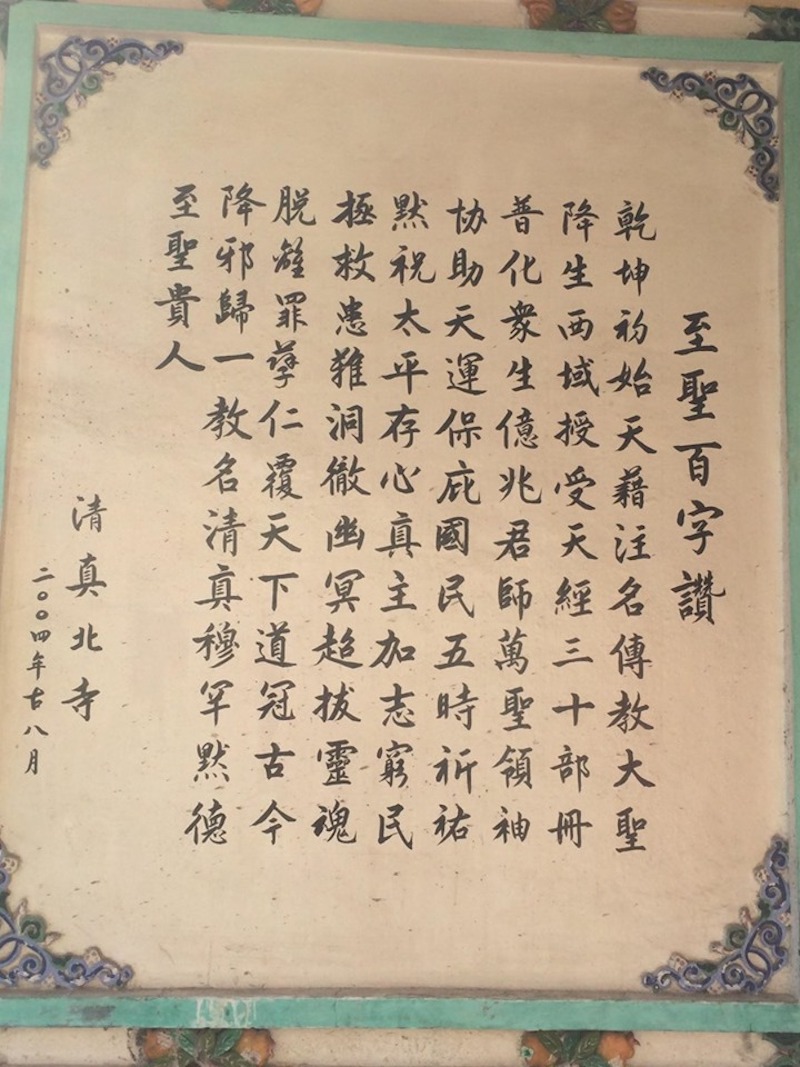 至聖百字讚
乾坤初始天藉注名傳教大聖
降生西域授受天經三十部冊
普化衆生億兆君師萬聖領袖
协助天運保庇國民五時祈祐
默祝太平存心真主加志窮民
拯救患難洞徹幽冥超拔靈魂
脱離罪孽仁覆天下道冠古今
降邪歸一教名清真穆罕默德
至聖貴人
清真北寺
二〇〇四年古八月